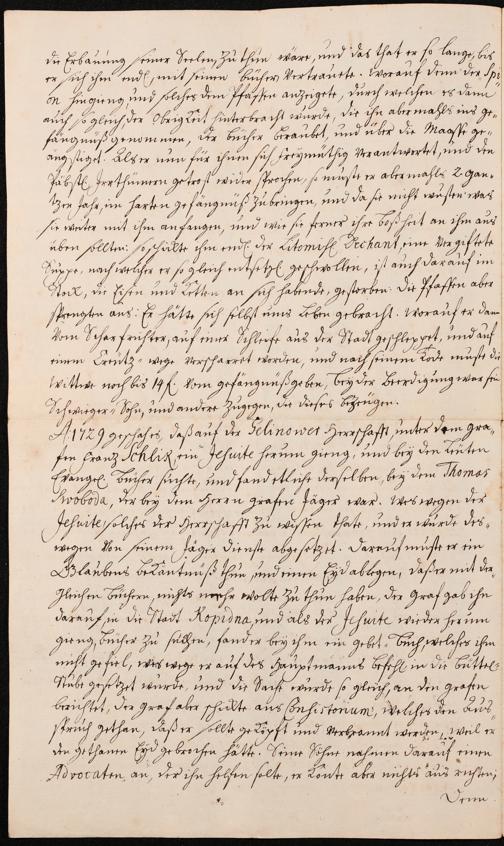 die Erbauung seiner Seelen, zu thun wäre, und das that er so lange, bis
er sich ihm endl. mit seinen bücher Vertrauete. Worauf denn der Spi-
on hingieng und solches dem Pfaffen anzeigete, durch welchen es dann
auch so gleich der Obrigkeit hinterbracht wurde, die ihn abermahls ins ge-
fängnüß genommen, der bücher beraubet, und über die Masse ge-
ängstiget. Als er nun für ihnen sich freymüthig verantwortet, und den
Päbstl. Irrthümern getrost wider sprochen, so muste er abermahls 2 gan-
tzer Jahr, im harten gefängnüß zubringen, und da sie nicht wusten was
sie weiter mit ihm anfangen, und wie sie ferner ihre boßheit an ihm aus
üben sollten: so schickte ihm endl. der Litomischl. Dechant, eine Vergiftete
Suppe, nach welcher er so gleich entsetzl. geschwollen, ist auch darauf im
Stock, die Eisen und Ketten an sich habende, gestorben. Die Pfaffen aber
sprengten aus: Er hätte sich selbst ums Leben gebracht. Worauf er dann
Vom Scharfrichter, auf einer Schleife aus der Stadt geschleppet, und auf
einem Creutz-wege verscharret worden, und nach seinem Tode muste die
Wittwe noch bis 14 f. Vom gefängnüß geben, bey der Beerdigung war sein
Schwieger-Sohn, und andere zugegen, die dieses bezeugen.
A 1729 geschahe, daß auf der Gelinower Herrschafft, unter dem gra-
fen Frantz Schlik, ein Jesuite herum gieng, und bey den Leuten
Evangel. bücher suchte, und fand etliche derselben, bey dem Thomas
Swoboda, der bey dem Herrn grafen Jäger war. Weswegen der
Jesuite, solches der Herrschafft zu wissen thate, und er wurde des-
wegen Von seinem Jäger dienste abgesetzet. Darauf muste er ein
Glaubens bekäntnüß thun, und einen Eyd ablegen, daß er mit der-
gleichen büchern, nichts mehr wolte zu thun haben, der Graf gab ihn
darauf in die Stadt Kopidna, und als der Jesuite wieder herum
gieng, bücher zu suchen, fand er bey ihm ein gebet buch, welches ihm
nicht gefiel, wes wegen er auf des Hauptmanns befehl, in die büttel-
Stube gesetzet wurde, und die Sache wurde so gleich, an den grafen
berichtet, der Graf aber schickte ans Consistorium, welches den Aus-
spruch gethan, daß er sollte geköpft und verbrannt werden, weil er
den gethanen Eyd gebrochen hätte. Seine Söhne nahmen darauf einen
Advocaten an, der ihm helfen solte, er konte aber nichts aus richten;
Denn